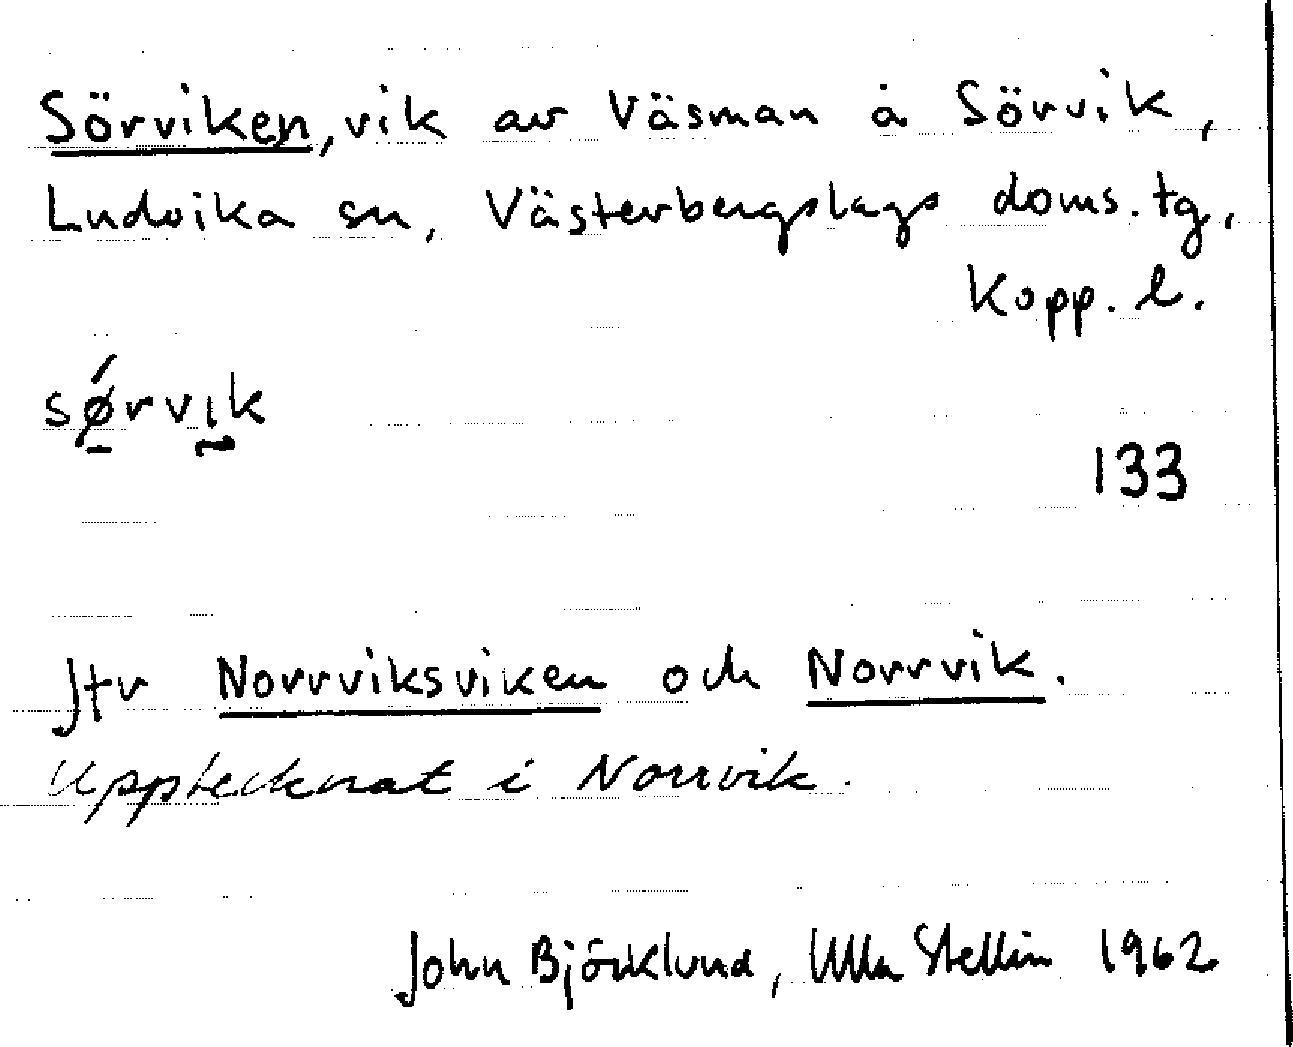 Sörviken, vik av Väsman å Sörvik,
Ludvika sn, Västerbergslags doms. tg,
Kopp. l.
sǿ̱rvı̰k
133
Jfr Norrviksviken och Norrvik.
Upptecknat i Norrvik.
John Björklund, Ulla Stellin 1962